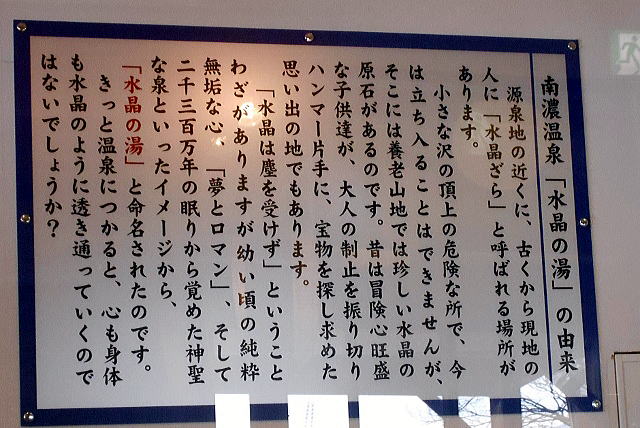 南濃温泉「水晶の湯」の由来
源泉地の近くに、古くから現地の
人に「水晶ざら」と呼ばれる場所が
あります。
小さな沢の頂上の危険な所で、今
は立ち入ることはできませんが、
そこには養老山地では珍しい水晶の
原石があるのです。昔は冒険心旺盛
な子供達が、大人の制止を振り切り
ハンマー片手に、宝物を探し求めた
思い出の地でもあります。
「水晶は塵を受けず」ということ
わざがありますが幼い頃の純粋
無垢な心、「夢とロマン」、そして
二千三百万年の眠りから覚めた神聖
な泉といったイメージから、
「水晶の湯」と命名されたのです。
きっと温泉につかると、心も身体
も水晶のように透き通っていくので
はないでしょうか？